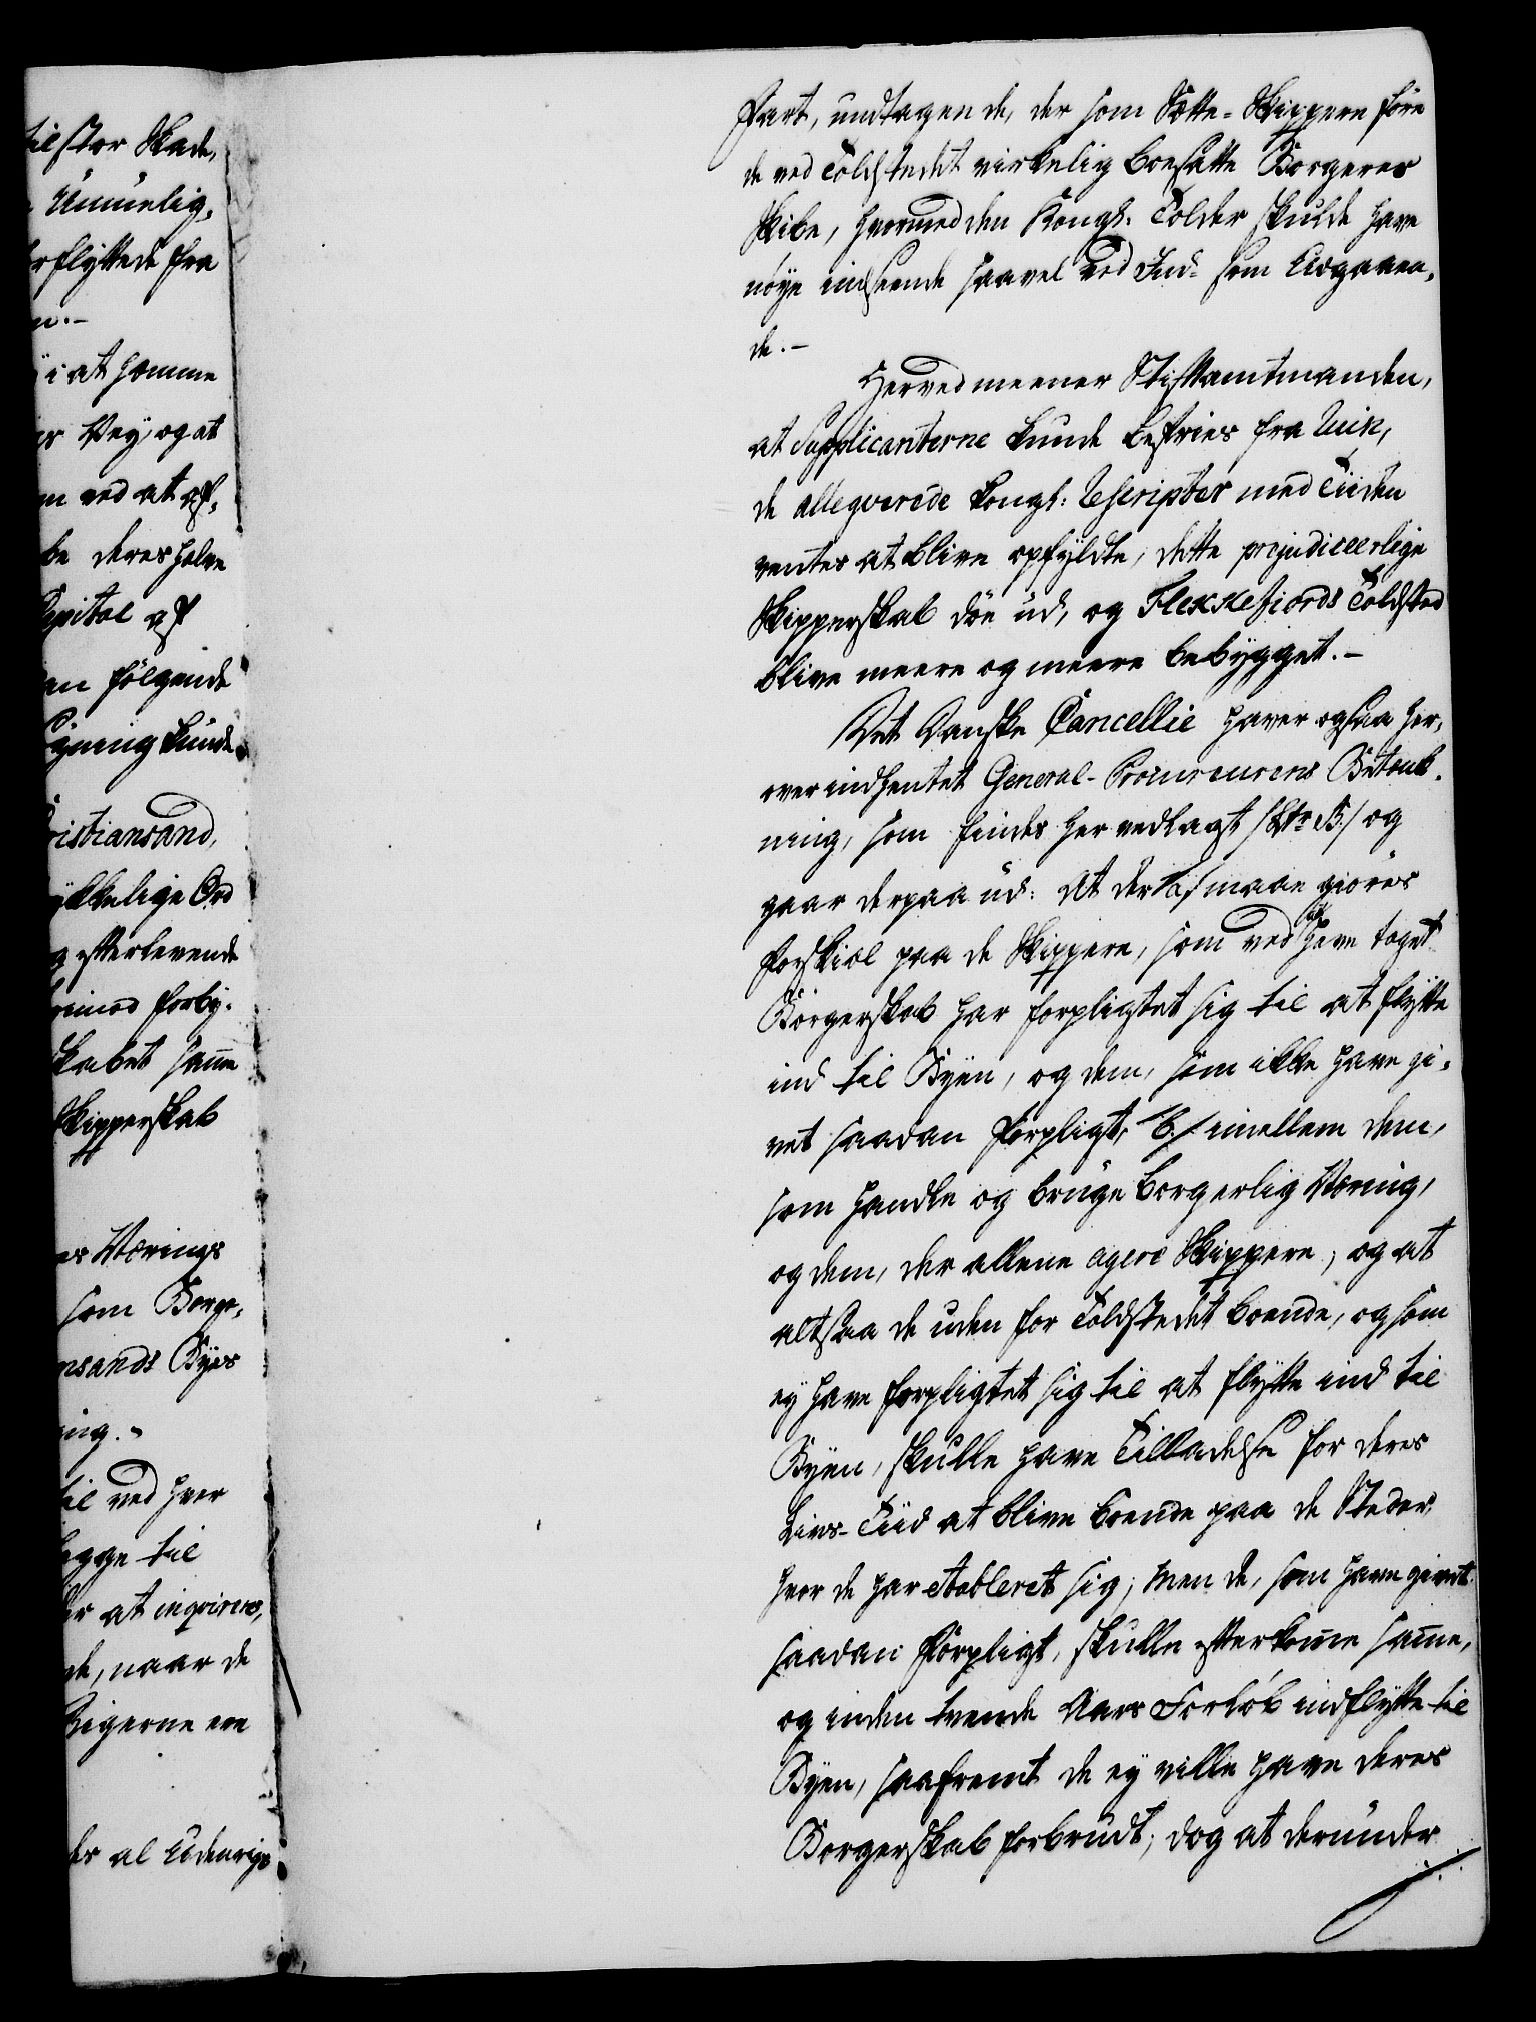 til stor Skade,
Umuelig,
rflyttede fra
n.-
i at hemme
Vey, og at
m ved at af,
be deres halve
Capital af
en følgende
ygning kunde
ristiansand,
ykkelige Ord
g efterlevende
rimod forby,
skabet saue
Skipperskab
es Nærings
som Borge,
nsands Byes
ing.-
til ved hver
legge til
er at inqvirere,
de, naar de
Rigerne ere
es al Udenrigs
Fart, undtagen de, der som Sætte-Skippere føre
de ved Toldstedet virkelig boesatte Borgeres
Skibe, hvormed den Kongl: Tolder skulde have
nøye indseende saavel ved Ind- som Udgaaen,
de.-
Herved meener Stiftamtmanden,
at Supplicanterne kunde befries fra Ruin,
de allegverede Kongl: Rescripter med Tiiden
ventes at blive opfyldte, dette præjudiceerlige
Skipperskab døe ud, og Flekkefiords Toldsted
blive meere og meere bebygget.-
Det Danske Cancellie haver ogsaa her,
over indhentet General-Procureurens Betænk,
ning, som findes her vedlagt /Ltr. B:/ og
gaar derpaa ud: At der /a:/ maae giøres
forskiel paa de Skippere, som ved at have taget
Borgerskab har forpligtet sig til at flytte
ind til Byen, og dem, som ikke have gi,
vet saadan Forpligt, /b:/ imellem dem,
som handle og bruge borgerlig Næring,
og dem, der allene agere Skippere, og at
altsaa de uden for Toldstedet boende, og som
ey have forpligtet sig til at flytte ind til
Byen, skulle have Tilladelse for deres
Livs-Tiid at blive boende paa de Steder,
hvor de har etableret sig; Men de, som have givet
saadan Forpligt, skulle efterkomme samme,
og inden tvende Aars Forløb indflytte til
Byen, saafremt de ey ville have deres
Borgerskab forbrudt; dog at derunder